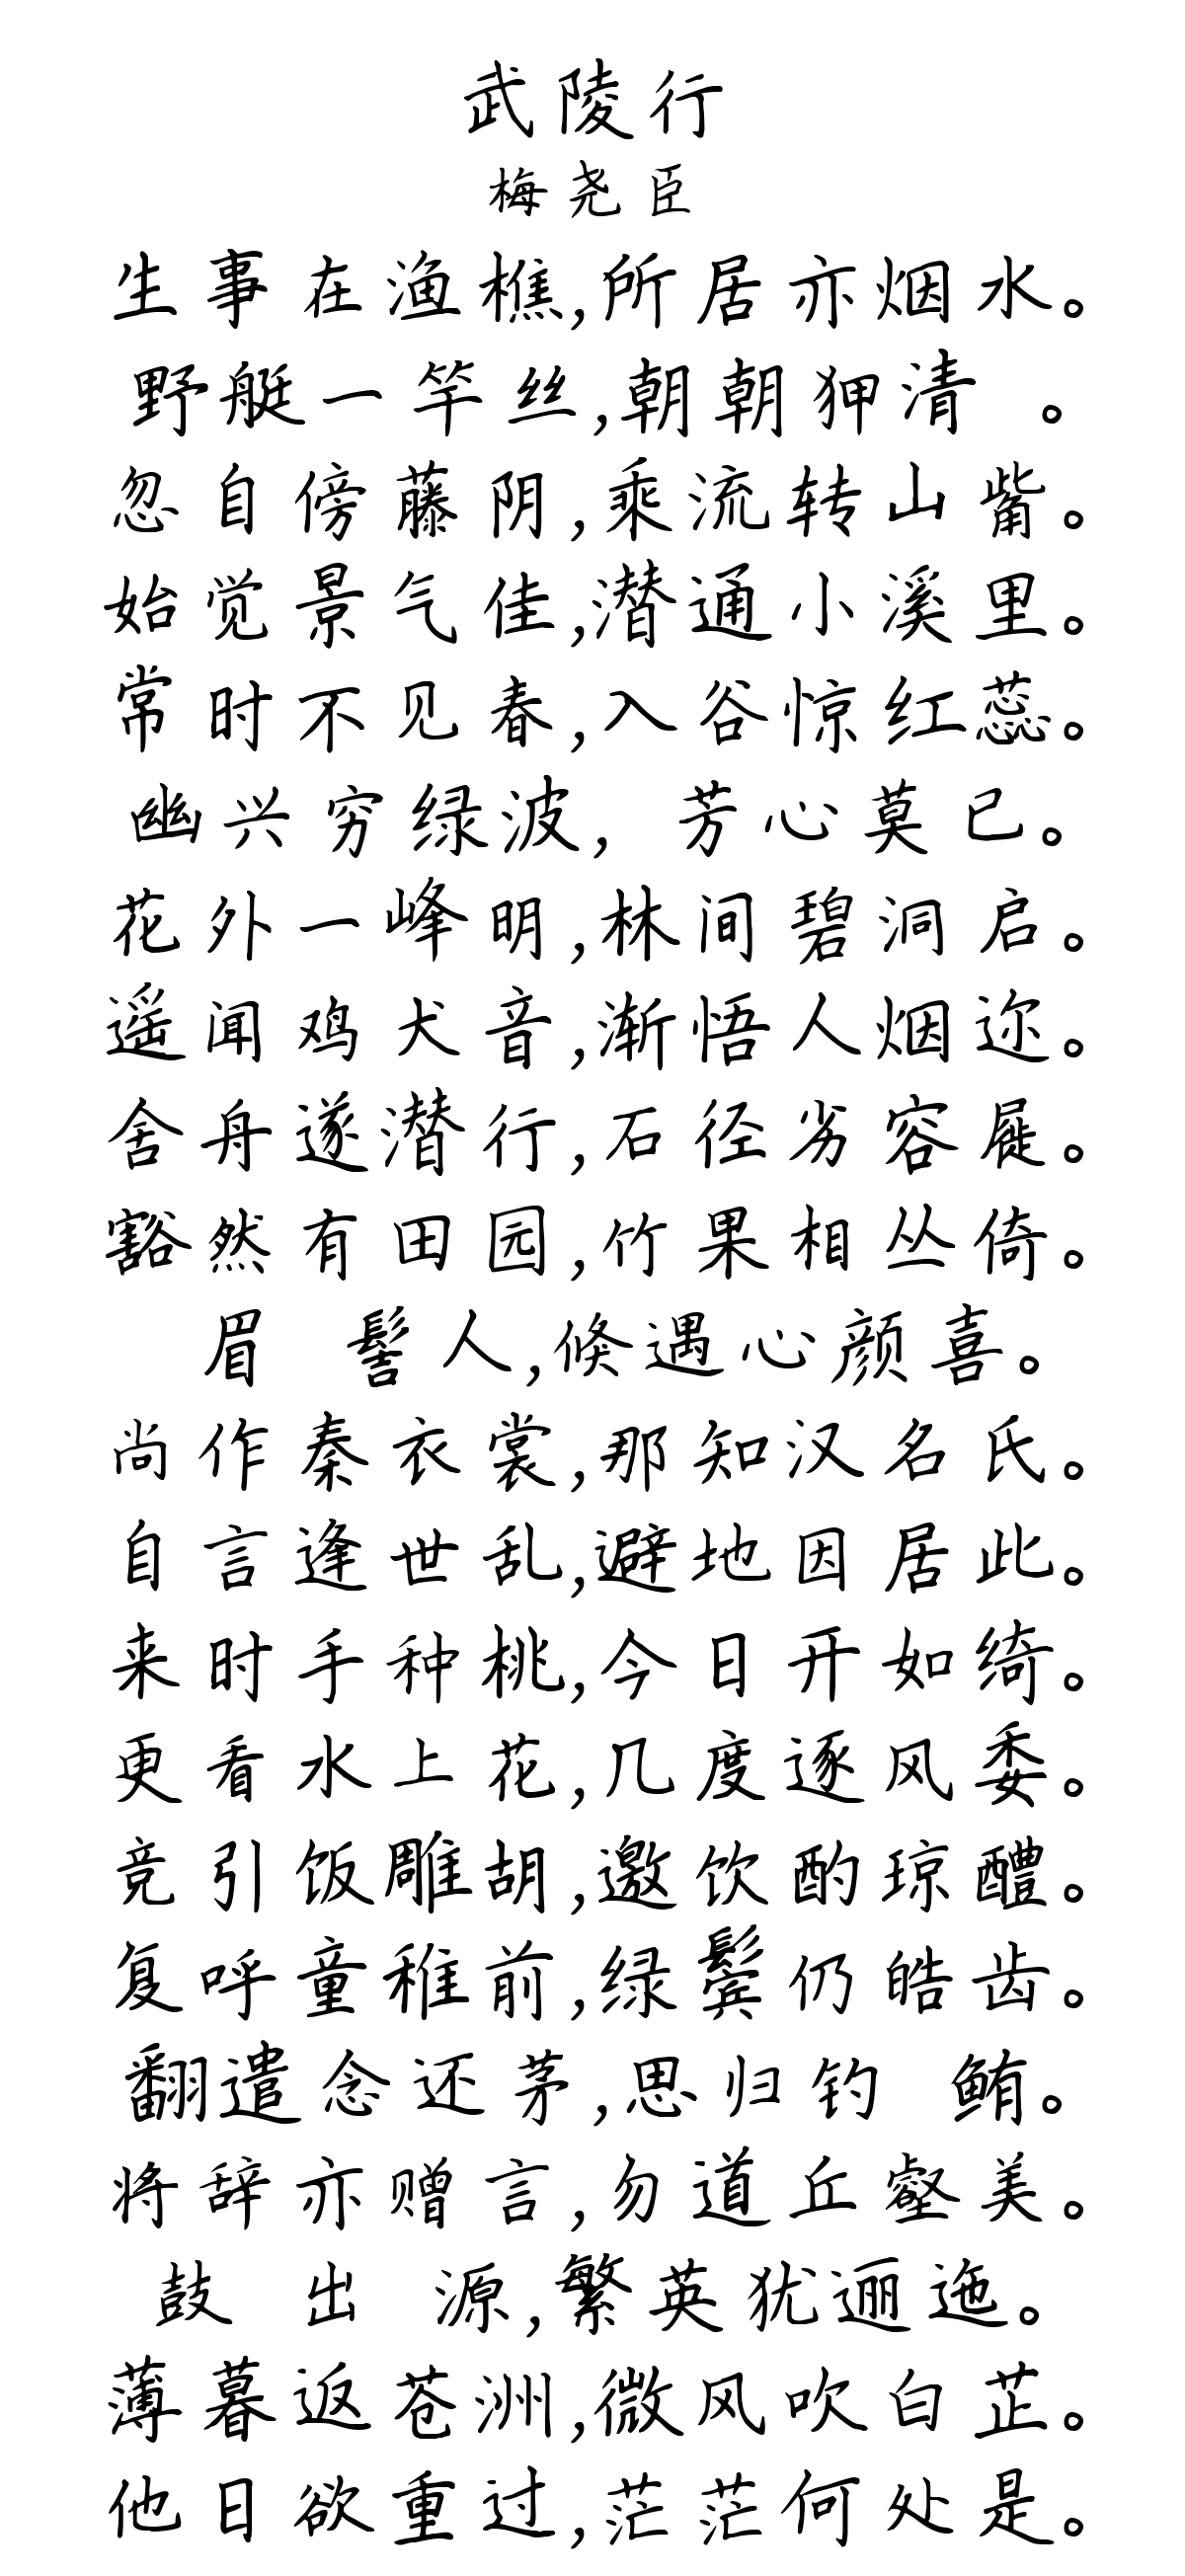 武陵行
梅尧臣
生事在渔樵,所居亦烟水。
野艇一竿丝,朝朝狎清 。
忽自傍藤阴,乘流转山觜。
始觉景气佳,潜通小溪里。
常时不见春,入谷惊红蕊。
幽兴穷绿波, 芳心莫已。
花外一峰明,林间碧洞启。
遥闻鸡犬音,渐悟人烟迩。
舍舟遂潜行,石径劣容屣。
豁然有田园,竹果相丛倚。
眉 髻人,倏遇心颜喜。
尚作秦衣裳,那知汉名氏。
自言逢世乱,避地因居此。
来时手种桃,今日开如绮。
更看水上花,几度逐风委。
竞引饭雕胡,邀饮酌琼醴。
复呼童稚前,绿鬓仍皓齿。
翻遣念还茅,思归钓 鲔。
将辞亦赠言,勿道丘壑美。
鼓 出 源,繁英犹逦迤。
薄暮返苍洲,微风吹白芷。
他日欲重过,茫茫何处是。